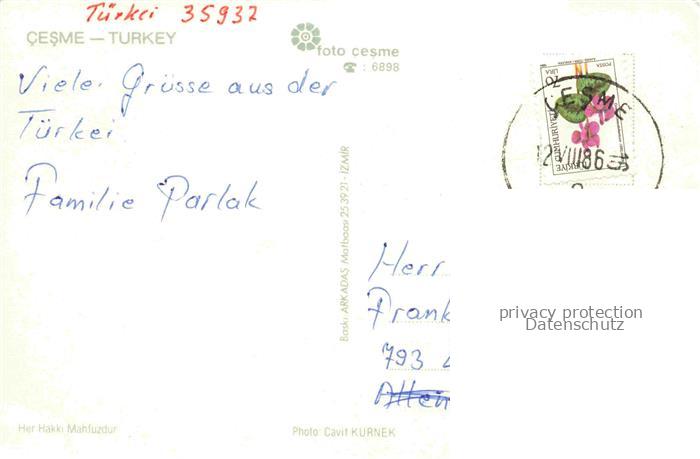 Türkei 35932
ÇEŞME — TURKEY
foto çeşme
☎ : 6898
Viele Grüsse aus der
Türkei
Familie Parlak
Baskı ARKADAŞ Matbaası 25 39 21 - İZMİR
POSTA
70
LİRA
TÜRKİYE CUMHURİYETİ
ÇEŞME
12 VIII 86
Herr
Frank
793
privacy protection
Datenschutz
Her Hakkı Mahfuzdur
Photo: Cavit KURNEK